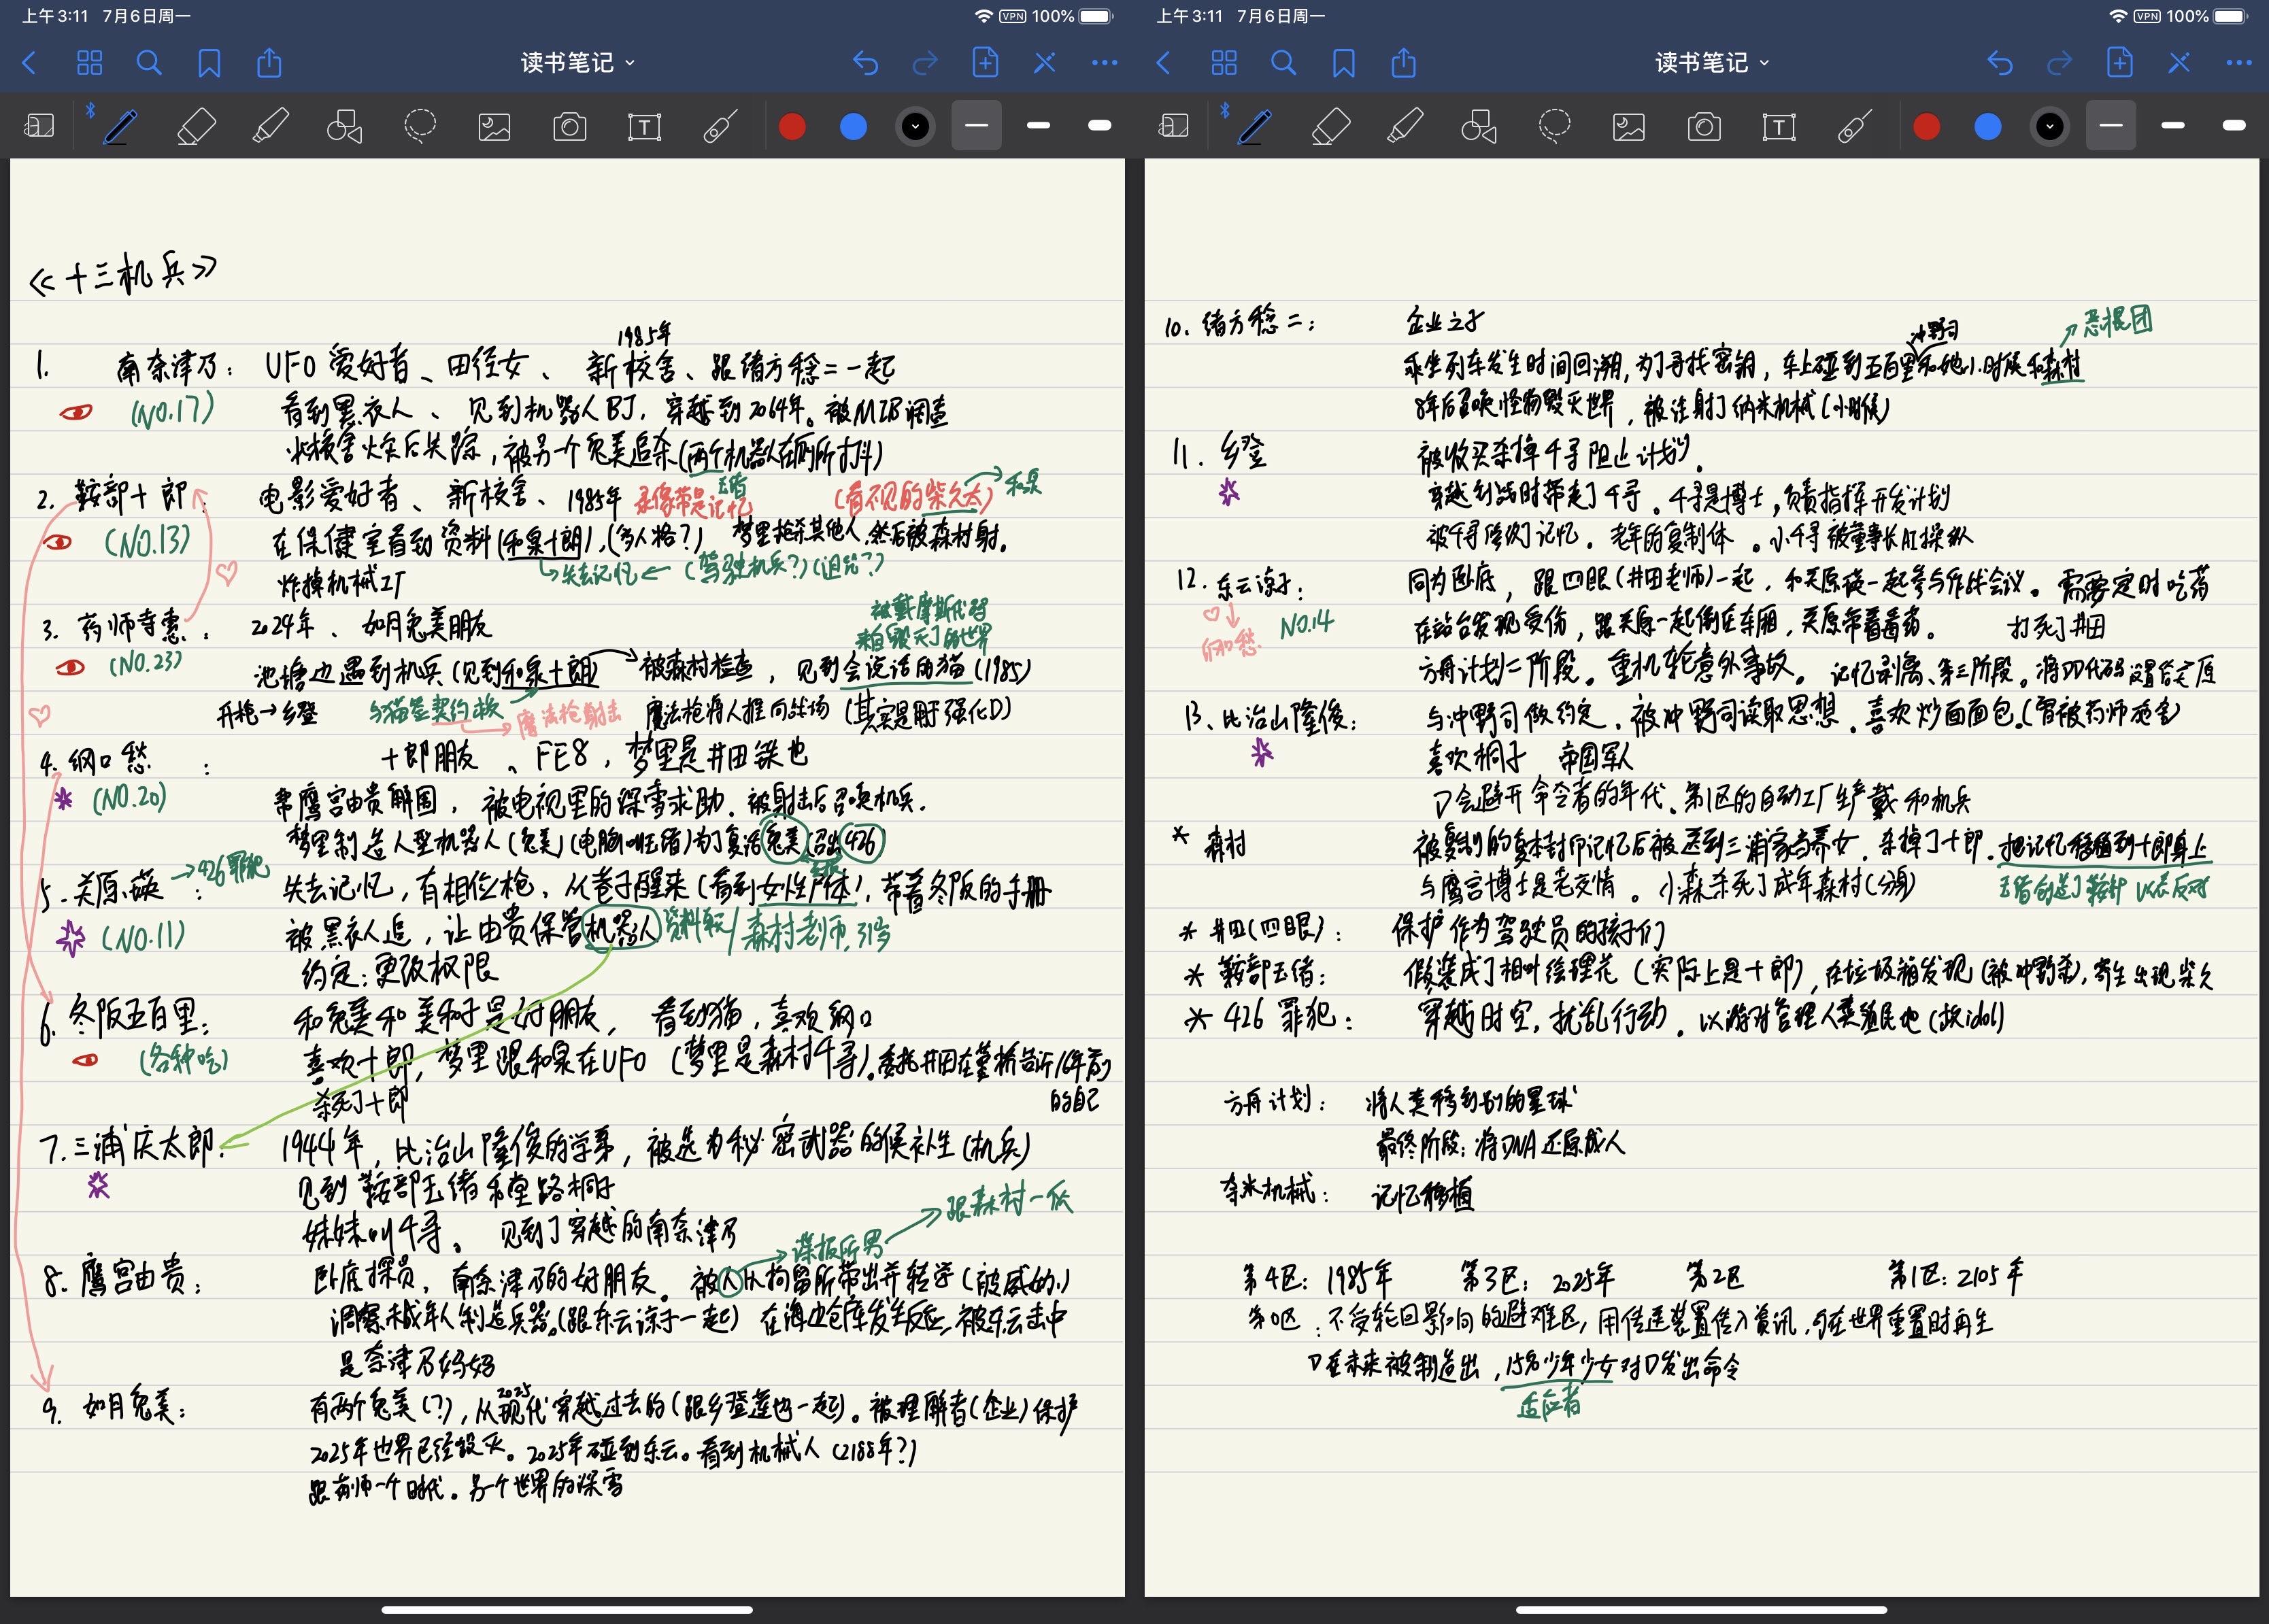 上午3:11 7月6日周一
VPN 100%
读书笔记
《十三机兵》
1985年
1. 南奈津乃: UFO爱好者、田径女、新校舍、跟绪方稔二一起
(NO.17) 看到黑衣人、见到机器人BJ, 穿越到2064年。被MIB调查
火灾后失踪,被另一个兔美追杀(两个机器人在厕所打斗)
2. 鞍部十郎: 电影爱好者、新校舍、1985年 录像带是记忆 (看不见的柴久太)→和泉
玉绪
(NO.13) 在保健室看到资料(和泉十郎),(多人格?) 梦里枪杀其他人,然后被森村射。
失去记忆←(驾驶机兵?)(诅咒?)
炸掉机械工厂
被戴摩斯代码
来自毁灭了的世界
3. 药师寺惠: 2024年、如月兔美朋友
(NO.23) 池塘边遇到机兵(见到和泉十郎)→被森村检查, 见到会说话的猫(1985)
开枪→乡登 与猫签契约 →魔法枪射击 魔法枪将人推向战场(其实是用于强化D)
4. 网口愁: 十郎朋友、FE8, 梦里是井田铁也
(NO.20) 帮鹰宫由贵解围, 被电视里的深雪求助. 被射击后召唤机兵.
梦里制造人型机器人(兔美)(电脑叫玉绪)为了复活兔美召出426
5. 关原瑛→426罪犯: 失去记忆,有相位枪、从巷子醒来(看到女性尸体), 带着冬阪的手册
(NO.11) 被黑衣人追, 让由贵保管机器人 资料 森村老师, 31岁
约定: 更改权限
6. 冬阪五百里: 和兔美和美和子是好朋友, 看到猫, 喜欢网口
(各种吃) 喜欢十郎, 梦里跟和泉在UFO (梦里是森村千寻). 委托井田在 告诉16年前
的自己
杀死了十郎
7. 三浦庆太郎: 1944年, 比治山隆俊的学弟, 被选为秘密武器的候补生(机兵)
见到鞍部玉绪和堂路桐子
妹妹叫千寻。见到了穿越的南奈津乃
→谍报所男→跟森村一伙
8. 鹰宫由贵: 卧底探员, 南奈津乃的好朋友。被人从拘留所带出并转学(被威妙)
调察未成年人制造兵器.(跟东云谅子一起) 在海边仓库发生反应, 被东云击中
是奈津乃妈妈
2025
9. 如月兔美: 有两个兔美(?), 从现代穿越过去的(跟乡登莲也一起)。被理解者(企业)保护
2025年世界已经毁灭。2025年碰到东云。看到机械人(2188年?)
跟药师一个时代。另一个世界的深雪
上午3:11 7月6日周一
VPN 100%
读书笔记
10. 绪方稔二: 企业之子
冲野司 →恶棍团
乘坐列车发生时间回溯, 为了寻找密钥, 车上碰到五百里和她小时候和森村
8年后召唤怪物毁灭世界, 被注射了纳米机械(小时候)
11. 乡登 被收买杀掉千寻阻止计划。
穿越到战时带走了千寻。千寻是博士, 负责指挥开发计划
被千寻修改了记忆. 老年的复制体。小千寻被董事长AI操纵
12. 东云谅子: 同为卧底, 跟四眼(井田老师)一起, 和关原瑛一起参与作战会议。需要定时吃药
NO.14 在站台发现受伤, 跟关原一起倒在车厢, 关原带着看病。 打死了井田
网和愁 方舟计划二阶段。重机轮意外事故。记忆剥离、第三阶段。将DD代码设置给关原
13. 比治山隆俊: 与冲野司做约定. 被冲野司读取思想. 喜欢炒面面包.(曾被药师施舍)
喜欢桐子 帝国军人
D会避开命令者的年代. 第1区的自动工厂生产戴和机兵
* 森村 被复制的复本封印记忆后被送到三浦家当养女. 杀掉了十郎. 把记忆移植到十郎身上
与鹰宫博士是老交情。小森杀死了成年森村 玉绪创造了鞍部以示反对
* 井田(四眼): 保护作为驾驶员的孩子们
* 鞍部玉绪: 假装成了相叶绘理花(实际上是十郎), 在垃圾箱发现(被冲野杀), 寄生出现柴久
* 426罪犯: 穿越时空, 扰乱行动. 以游对管理人类殖民地(救idol)
方舟计划: 将人类移到别的星球
最终阶段: 将DNA还原成人
奈米机械: 记忆移植
第4区: 1985年 第3区: 2025年 第2区 第1区: 2105年
第0区: 不受轮回影响的避难区, 用传送装置传入资讯, 可在世界重置时再生
D在未来被制造出, 15名少年少女对D发出命令
适应者